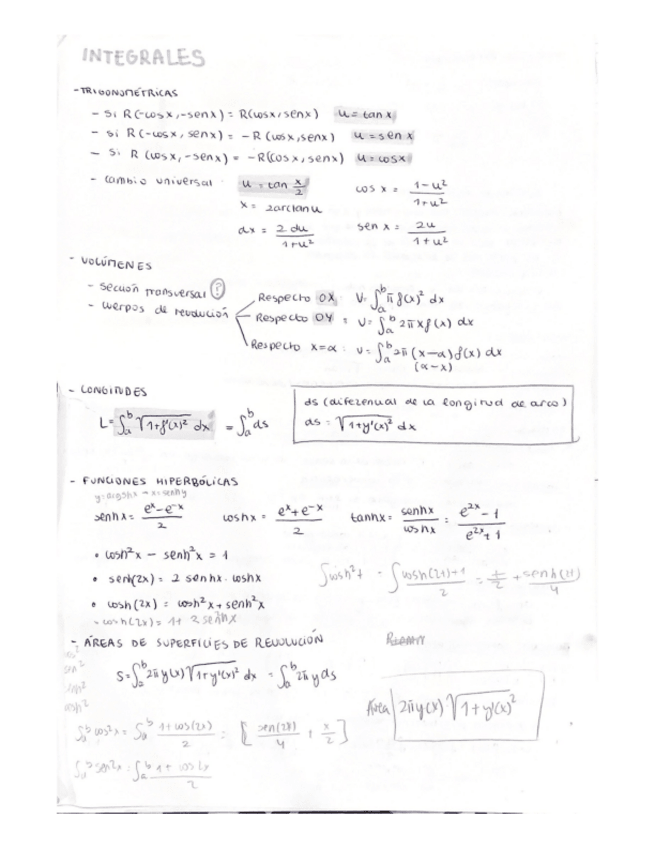 INTEGRALES
- TRIGONOMÉTRICAS
- Si R(-cosx, -senx) = R(cosx, senx) u = tan x
- si R(-cosx, senx) = -R(cosx, senx) u = sen x
- si R(cosx, -senx) = -R(cosx, senx) u = cosx
- cambio universal u = tan x/2 cos x = (1-u²)/(1+u²)
x = 2arctanu
dx = 2du/(1+u²) sen x = 2u/(1+u²)
- VOLÚMENES
- sección transversal ?
- cuerpos de revolución
Respecto OX: V = ∫ₐᵇ π f(x)² dx
Respecto OY: V = ∫ₐᵇ 2πx f(x) dx
Respecto x=α: V = ∫ₐᵇ 2π (x-α) f(x) dx
(α-x)
- LONGITUDES
L = ∫ₐᵇ √(1+f'(x)²) dx = ∫ₐᵇ ds
ds (diferencial de la longitud de arco)
ds = √(1+y'(x)²) dx
- FUNCIONES HIPERBÓLICAS
y=argshx → x=senhy
senhx = (eˣ-e⁻ˣ)/2 coshx = (eˣ+e⁻ˣ)/2 tanhx = senhx/coshx = (e²ˣ-1)/(e²ˣ+1)
• cosh²x - senh²x = 1
• senh(2x) = 2 senhx · coshx
∫cosh²t = ∫(cosh(2t)+1)/2 = t/2 + senh(2t)/4
• cosh(2x) = cosh²x + senh²x
- cosh(2x) = 1 + 2senh²x
- ÁREAS DE SUPERFICIES DE REVOLUCIÓN
S = ∫ₐᵇ 2πy(x) √(1+y'(x)²) dx = ∫ₐᵇ 2πy ds
Área 2πy(x) √(1+y'(x)²)
∫ₐᵇ cos²x = ∫ₐᵇ (1+cos(2x))/2 = [sen(2x)/4 + x/2]